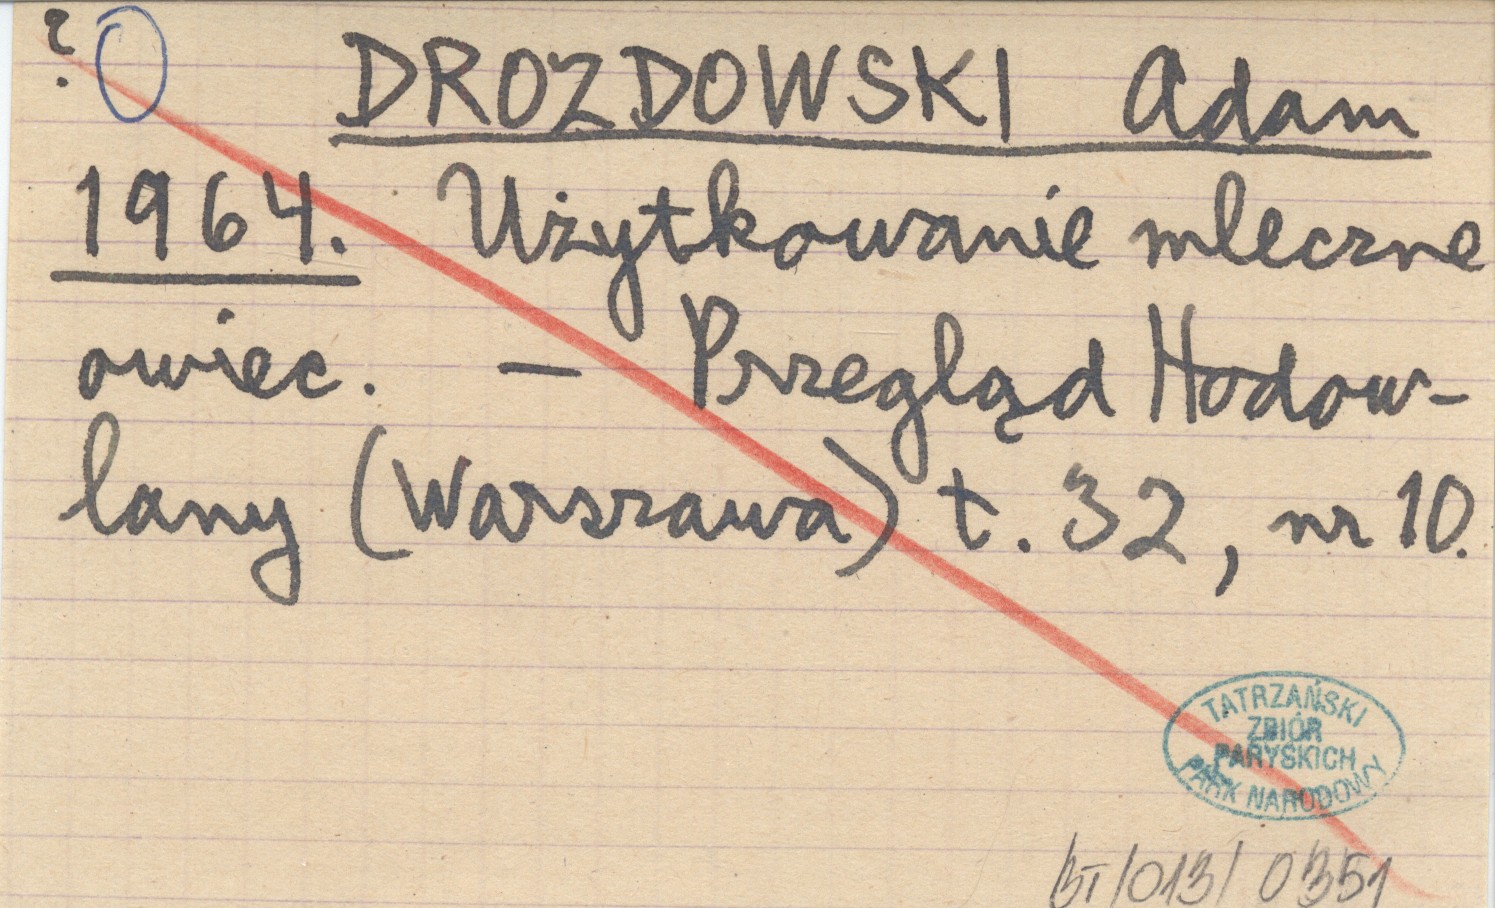 ?
DROZDOWSKI Adam
1964. Użytkowanie mleczne
owiec. – Przegląd Hodow-
lany (Warszawa) t. 32, nr 10.
TATRZAŃSKI
ZBIÓR
PARYSKICH
PARK NARODOWY
BT/013/0351